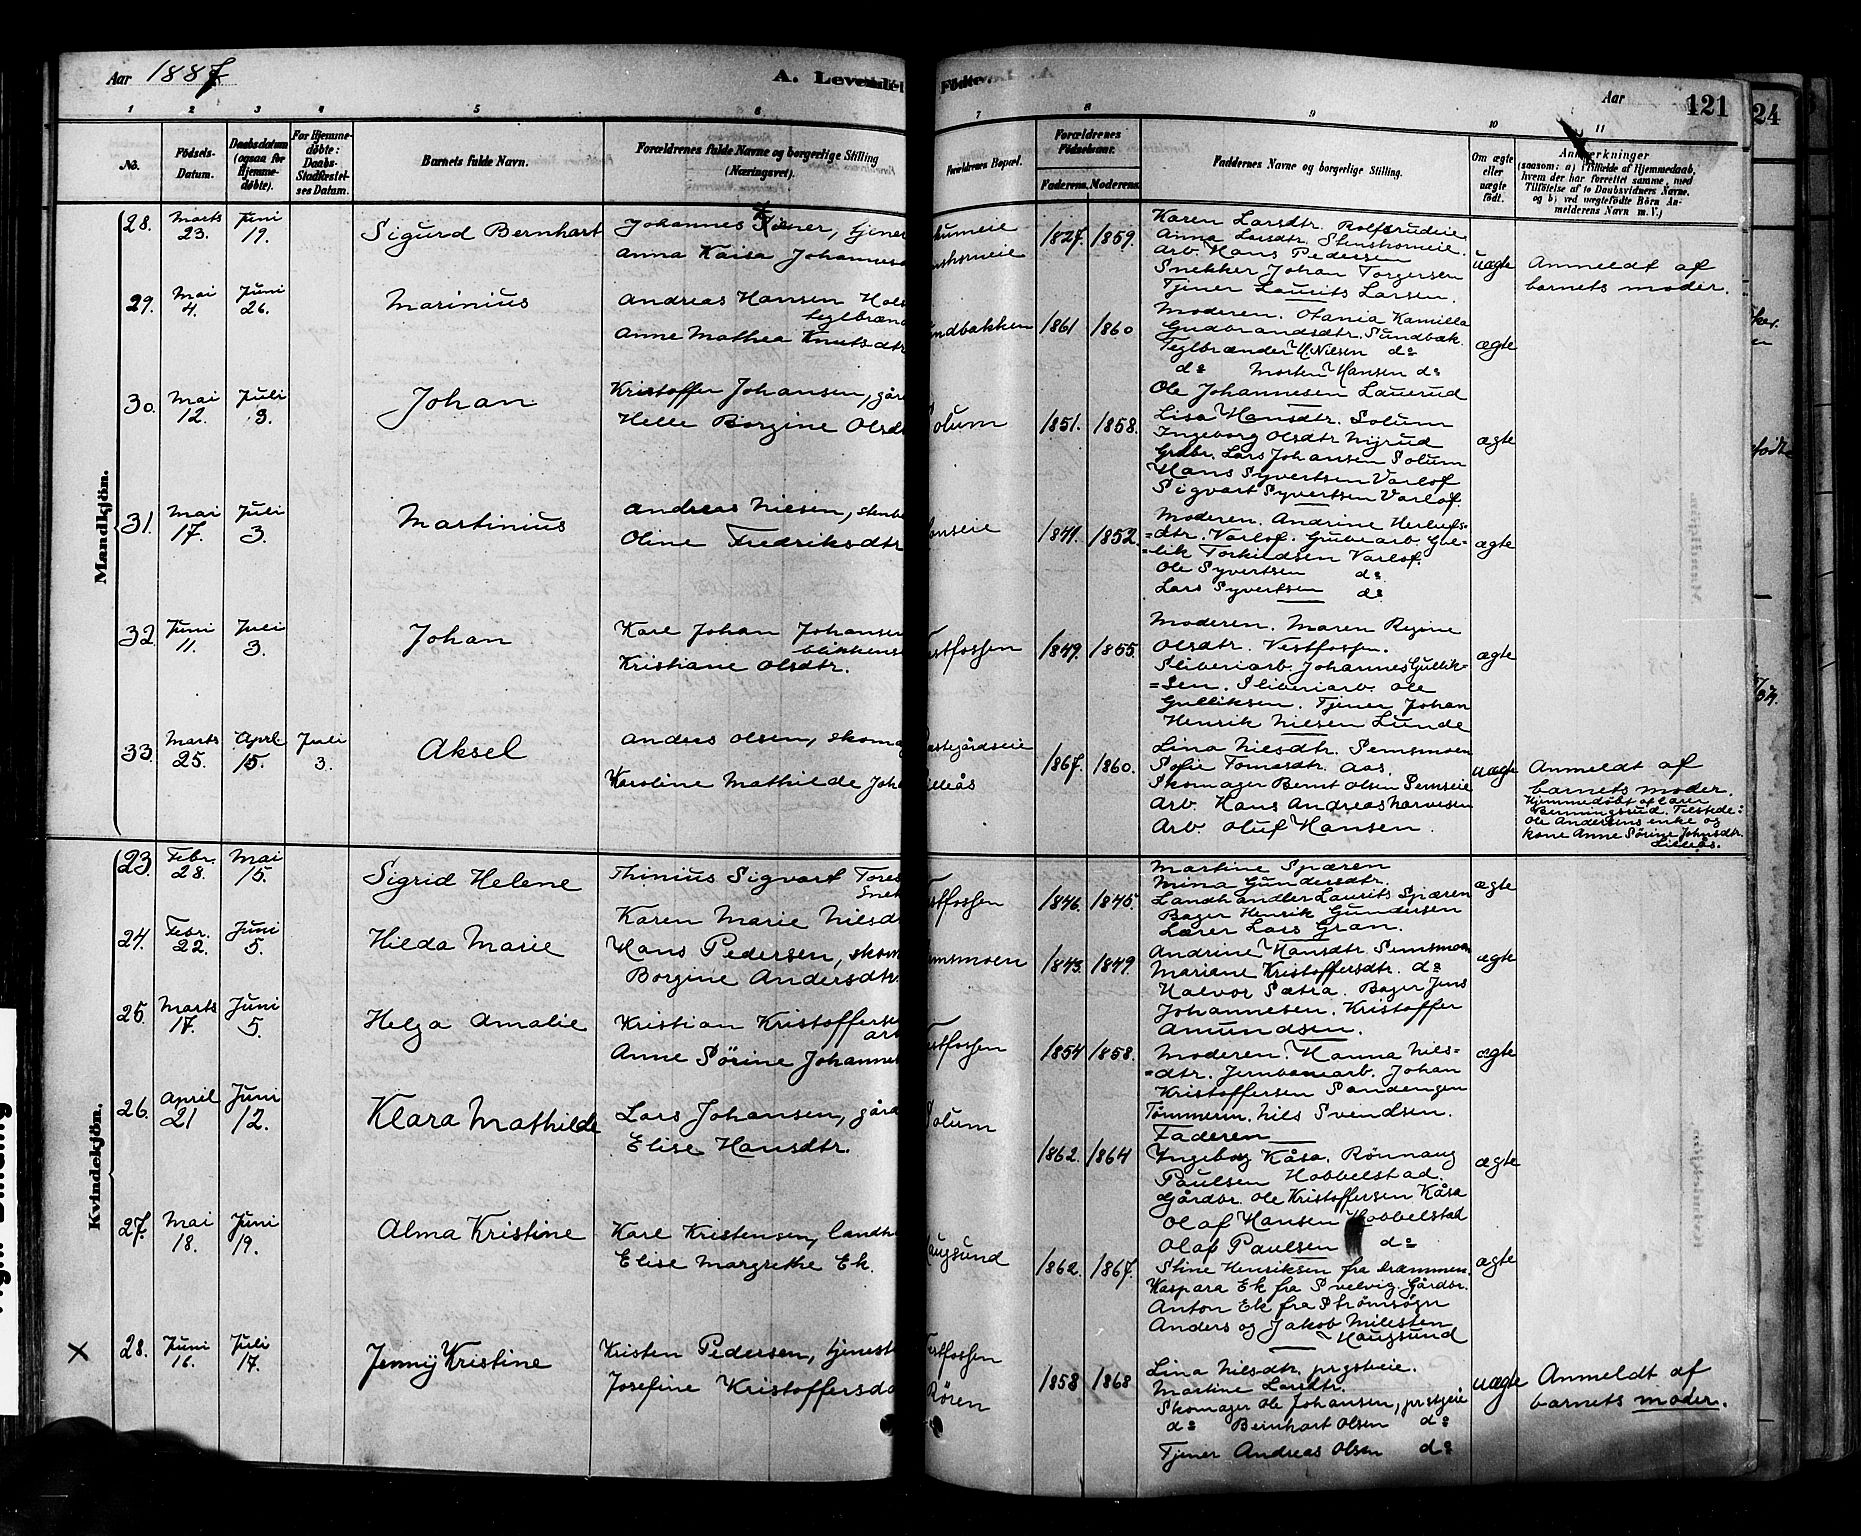 Aar 1887. A. Levende
Födte. A. Aar 121
24
1 2 3 4 5 6
7 8 9 10 11
No. Födsels-Datum. Daabsdatum (ogsaa for Hjemmedøbte). For Hjemmedøbte: Daabs-Stadfæstelses Datum. Barnets fulde Navn. Forældrenes fulde Navne og borgerlige Stilling (Næringsvei).
Forældrenes Bopæl. Forældrenes Födselsaar. Faderens. Moderens. Faddernes Navne og borgerlige Stilling. Om ægte eller uægte født. Anmerkninger (saasom: a) Tilfælde af Hjemmedaab, hvem der har forrettet samme, med Tilföielse af to Daabsvidners Navne. og b) ved uægtefødte Börn Anmelderens Navn m. V.)
Mandkjön.
28. Marts 23. Juni 19. Sigurd Bernhart Johannes
tjener
Anna Kaisa Johannes
1827. 1859.
Karen Larsdtr. Rolfsrudeie
Anna Larsdtr. Stenshorneie.
Arb. Hans Pedersen
Snekker Johan Torgersen
Tjener Laurits Larsen.
uægte
Anmeldt af
barnets moder.
29. Mai 4. Juni 26. Marinius
Andreas Hansen
teglbrænd
Anne Mathea Knutsdtr
undbakken 1861 1860
Moderen. Otania Kamilla
Gudbrandsdtr. Sundbak.
Teglbrænder H. Nilsen do
do Morten Hansen do
Ole Johannesen Lauerud
ægte
30. Mai 12. Juli 3. Johan
Kristoffer Johansen, går
Helle Borgine Olsd
Solum 1851. 1858.
Lisa Hansdtr. Solum
Ingeborg Olsdtr Myrud
Grdbr. Lars Johansen Solum
Hans Syvertsen Varlof
Sigvart Syvertsen Varlof.
ægte
31. Mai 17. Juli 3. Martinius
Andreas Nilsen,
Oline Fredriksdtr
onseie 1849. 1852.
Moderen. Andrine Herlufs=
=dtr. Varlof. Grubearb. Gul=
=lik Torkildsen Varlof.
Ole Syvertsen do
Lars Syvertsen do
ægte
32. Juni 11. Juli 3. Johan
Karl Johan Johansen
blikkens
Kristiane Olsdtr.
Vestfossen 1849. 1855.
Moderen. Maren Regine
Olsdtr. Vestfossen.
Sliberiarb. Johannes Gullik=
=sen. Sliberiarb. Ole
Gulliksen. Tjener Johan
Henrik Nilsen Lunde
ægte
33. Marts 25. April 15. Juli 3. Aksel
Andres Olsen, skomag
Karoline Mathilde Joh
Præstegårdseie
Lilleås
1867. 1860.
Lina Nilsdtr. Semsmoen
Sofie Tomasdtr. Aas.
Skomager Bernt Olsen Semseie
Arb. Hans Andreas
Arb. Oluf Hansen.
uægte
Anmeldt af
barnets moder.
Hjemmedøbt af lærer
Tilstede:
Ole Andersens enke og
kone Anne Sørine Johnsdtr.
Lilleås.
Kvindekjön.
23. Febr. 28. Mai 15. Sigrid Helene
Thinius Sigvart Tores
Snek
Karen Marie Nilsd
Vestfossen 1846. 1845.
Martine Spæren
Mina Gundersdtr.
Landhandler Laurits Spæren
Bager Henrik Gundersen
Lærer Lars Gran.
ægte
24. Febr. 22. Juni 5. Hilda Marie
Hans Pedersen, skom
Borgine Andersdtr.
Semsmoen 1843. 1849.
Andrine Hansdtr Semsmoen
Mariane Kristoffersdtr. do
Halvor Sætra. Bager Jens
Johannesen. Kristoffer
Amundsen.
ægte
25. Marts 17. Juni 5. Helga Amalie
Kristian Kristofferse
arb
Anne Sørine Johanne
Vestfossen 1854 1858.
Moderen. Hanna Nils=
=dtr. Jernbanearb. Johan
Kristoffersen Sandengen
Tømmerm. Nils Svendsen.
Faderen
ægte
26. April 21 Juni 12. Klara Mathilde
Lars Johansen, gård
Elise Hansdtr.
Solum 1862. 1864
Ingeborg Kåsa. Rønnaug
Paulsen Hobbelstad.
Gårdbr. Ole Kristoffersen Kåsa
Olaf Hansen Hobbelstad
Olaf Paulsen do
ægte
27. Mai 18. Juni 19. Alma Kristine
Karl Kristensen, landh
Elise Margrethe Ek.
Haugsund 1862. 1867.
Stine Henriksen fra Drammen.
Kaspara Ek fra Svelvig. Gårdbr.
Anton Ek fra Strømsøgn
Anders og Jakob Milesten
Haugsund
ægte
x 28. Juni 16. Juli 17. Jenny Kristine
Kristen Pedersen, tjenest
Josefine Kristoffersd
Vestfossen
Røren
1858 1868
Lina Nilsdtr. prgsteie.
Martine Larsdtr.
Skomager Ole Johansen, prstgeie
do Bernhart Olsen do
Tjener Andreas Olsen do
uægte
Anmeldt af
barnets moder.